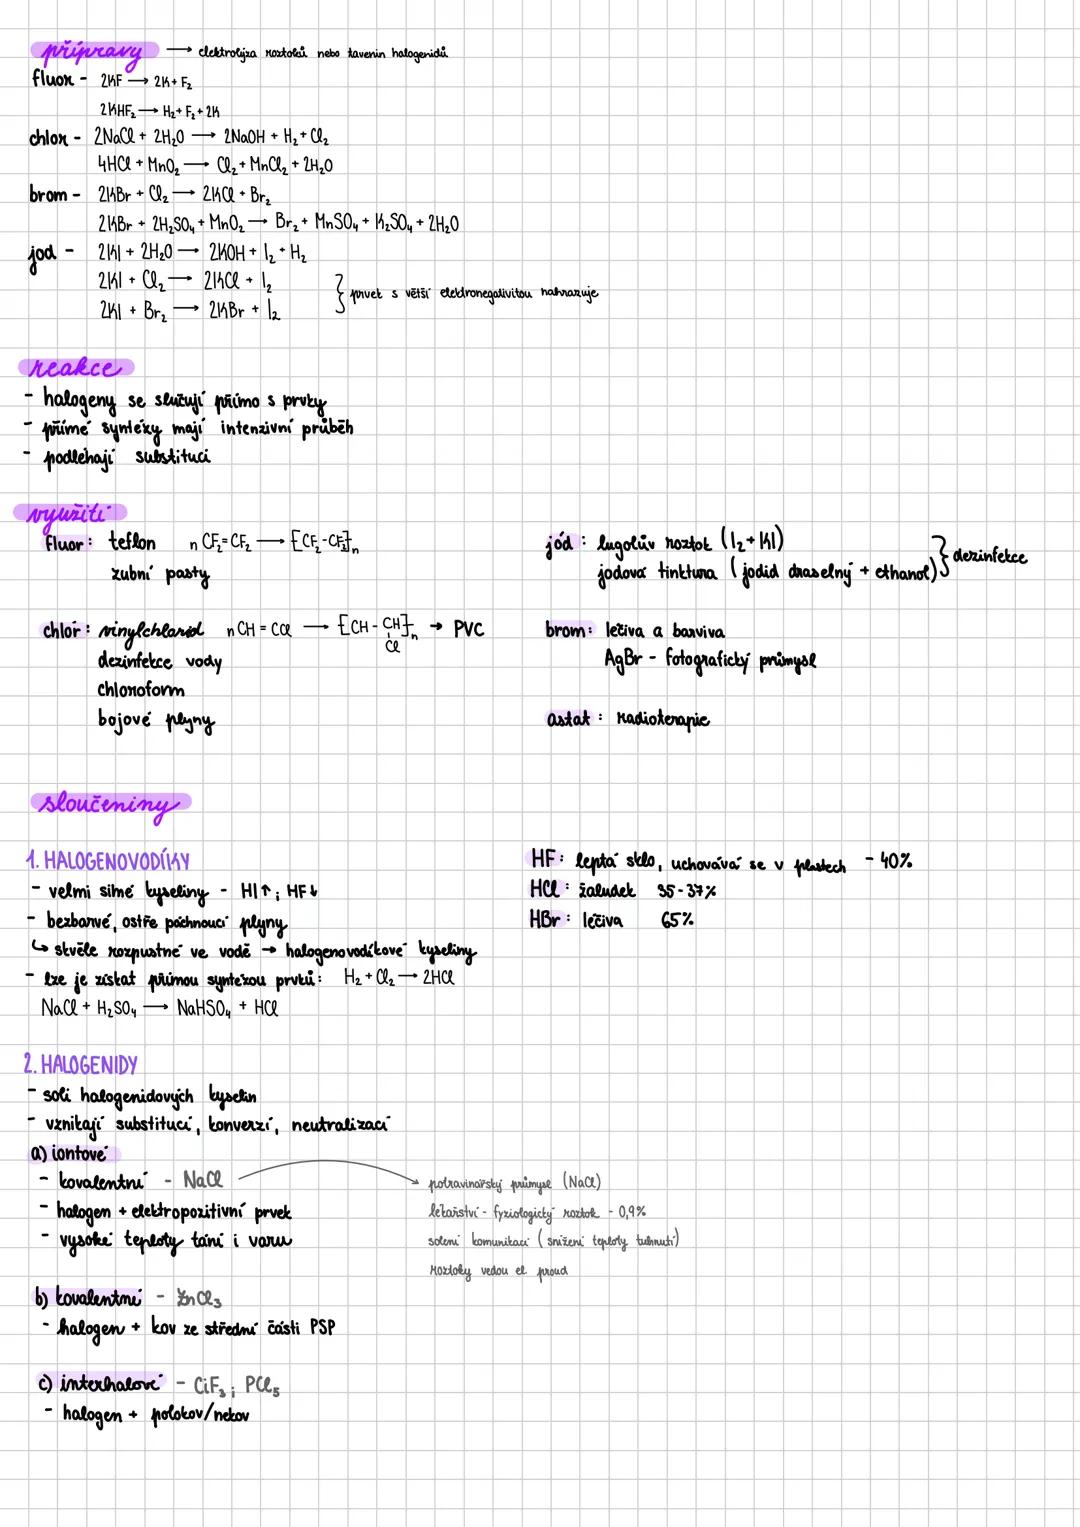 přípravy → elektrolýza roztoků nebo tavenin halogenidů
fluor - 2KF → 2K + F₂
2KHF₂ → H₂ + F₂ + 2K
chlor - 2NaCl + 2H₂O → 2NaOH + H₂ + Cl₂
4HCl + MnO₂ → Cl₂ + MnCl₂ + 2H₂O
brom - 2KBr + Cl₂ → 2KCl + Br₂
2KBr + 2H₂SO₄ + MnO₂ → Br₂ + MnSO₄ + K₂SO₄ + 2H₂O
jod - 2KI + 2H₂O → 2KOH + I₂ + H₂
2KI + Cl₂ → 2KCl + I₂
2KI + Br₂ → 2KBr + I₂
} prvek s větší elektronegativitou nahrazuje
reakce
- halogeny se slučují přímo s prvky
- přímé syntézy mají intenzivní průběh
- podléhají substituci
využití
fluor: teflon n CF₂=CF₂ → [CF₂-CF₂]ₙ
zubní pasty
jód: lugolův roztok (I₂ + KI)
jodová tinktura (jodid draselný + ethanol) } dezinfekce
chlór: vinylchlorid n CH = CCl → [CH - CH]ₙ → PVC
Cl
dezinfekce vody
chloroform
bojové plyny
brom: léčiva a barviva
AgBr - fotografický průmysl
astat: radioterapie
sloučeniny
1. HALOGENOVODÍKY
- velmi silné kyseliny - HI↑; HF↓
- bezbarvé, ostře páchnoucí plyny
↳ skvěle rozpustné ve vodě → halogenovodíkové kyseliny
- lze je získat přímou syntézou prvků: H₂ + Cl₂ → 2HCl
NaCl + H₂SO₄ → NaHSO₄ + HCl
HF: leptá sklo, uchovává se v plastech - 40%
HCl: žaludek 35-37%
HBr: léčiva 65%
2. HALOGENIDY
- soli halogenidových kyselin
- vznikají substitucí, konverzí, neutralizací
a) iontové
- kovalentní - NaCl
- halogen + elektropozitivní prvek
- vysoké teploty tání i varu
potravinářský průmysl (NaCl)
lékařství - fyziologický roztok - 0,9%
solení komunikací (snížení teploty tuhnutí)
roztoky vedou el. proud
b) kovalentní - ZnCl₃
- halogen + kov ze střední části PSP
c) interhalové - CiF₃; PCl₅
- halogen + polokov/nekov